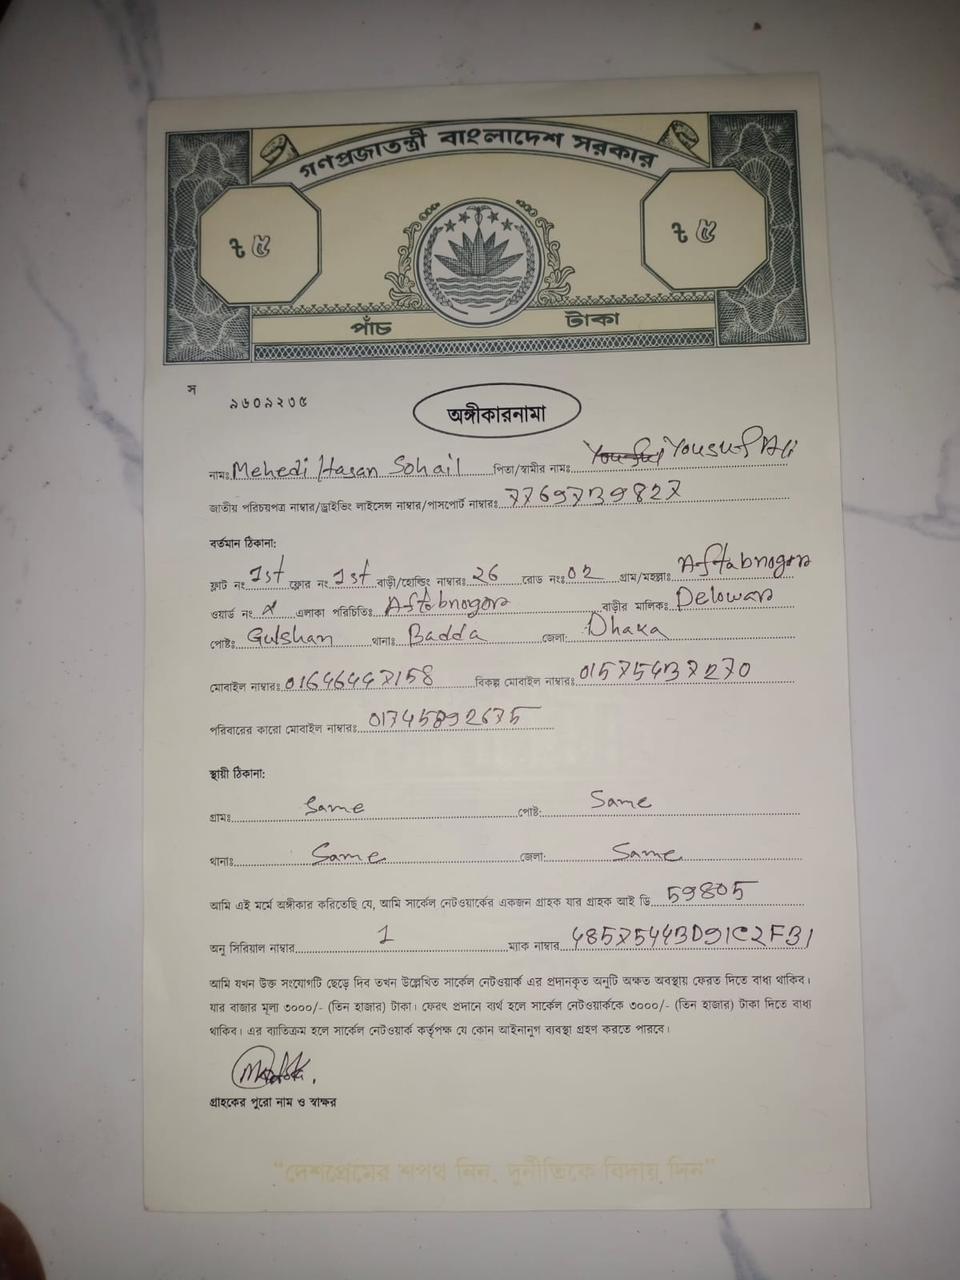 গণপ্রজাতন্ত্রী বাংলাদেশ সরকার
৳ ৫ ৳ ৫
পাঁচ টাকা
স
৯৬০৯২৩৫
অঙ্গীকারনামা
নামঃ Mehedi Hasan Sohail পিতা/স্বামীর নামঃ Yousuf Ali
জাতীয় পরিচয়পত্র নাম্বার/ড্রাইভিং লাইসেন্স নাম্বার/পাসপোর্ট নাম্বারঃ 7769739827
বর্তমান ঠিকানা:
ফ্লাট নং 1st ফ্লোর নং 1st বাড়ী/হোল্ডিং নাম্বারঃ 26 রোড নংঃ 02 গ্রাম/মহল্লাঃ Aftabnogor
ওয়ার্ড নং এলাকা পরিচিতিঃ Aftabnogor বাড়ীর মালিকঃ Delowar
পোষ্টঃ Gulshan থানাঃ Badda জেলা: Dhaka
মোবাইল নাম্বারঃ 01646447158 বিকল্প মোবাইল নাম্বারঃ 01575437270
পরিবারের কারো মোবাইল নাম্বারঃ 01745892675
স্থায়ী ঠিকানা:
গ্রামঃ Same পোষ্ট: Same
থানাঃ Same জেলা: Same
আমি এই মর্মে অঙ্গীকার করিতেছি যে, আমি সার্কেল নেটওয়ার্কের একজন গ্রাহক যার গ্রাহক আই ডি 59805
অনু সিরিয়াল নাম্বার 1 ম্যাক নাম্বার 48575443D91C2F31
আমি যখন উক্ত সংযোগটি ছেড়ে দিব তখন উল্লেখিত সার্কেল নেটওয়ার্ক এর প্রদানকৃত অনুটি অক্ষত অবস্থায় ফেরত দিতে বাধ্য থাকিব।
যার বাজার মূল্য ৩০০০/- (তিন হাজার) টাকা। ফেরৎ প্রদানে ব্যর্থ হলে সার্কেল নেটওয়ার্ককে ৩০০০/- (তিন হাজার) টাকা দিতে বাধ্য
থাকিব। এর ব্যতিক্রম হলে সার্কেল নেটওয়ার্ক কর্তৃপক্ষ যে কোন আইনানুগ ব্যবস্থা গ্রহণ করতে পারবে।
গ্রাহকের পুরো নাম ও স্বাক্ষর
“দেশপ্রেমের শপথ নিন, দুর্নীতিকে বিদায় দিন”